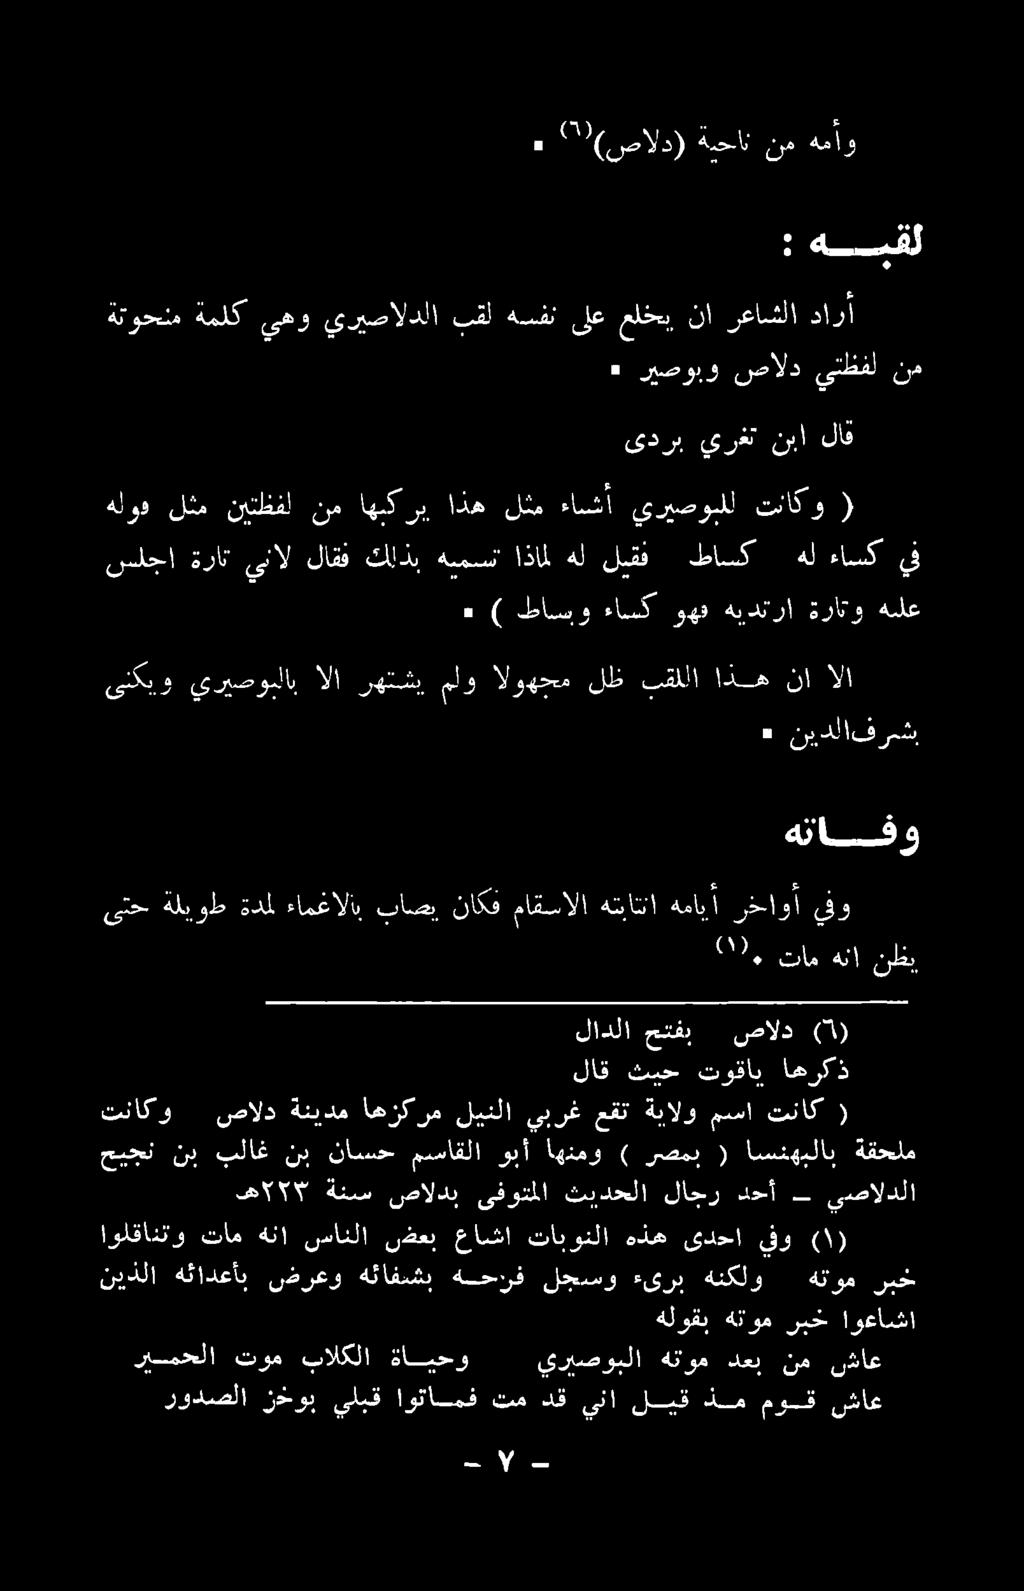 وأمه من ناحية (دلاص)(٦) .
لقبـــه :
أراد الشاعر ان يخلع على نفسه لقب الدلاصيري وهي كلمة منحوتة
من لفظتي دلاص وبوصير .
قال ابن تغري بردى
( وكانت للبوصيري أشياء مثل هذا يركبها من لفظتين مثل قوله
في كساء له كساط فقيل له لماذا تسميه بذلك فقال لاني تارة اجلس
عليه وتارة ارتديه فهو كساء وبساط ) .
الا ان هـذا اللقب ظل مجهولا ولم يشتهر الا بالبوصيري ويكنى
بشرف الدين .
وفـــاته
وفي أواخر أيامه انتابته الاسقام فكان يصاب بالاغماء لمدة طويلة حتى
يظن انه مات .(١)
(٦) دلاص بفتح الدال
ذكرها ياقوت حيث قال
( كانت اسم ولاية تقع غربي النيل مركزها مدينة دلاص وكانت
ملحقة بالبهنسا ( بمصر ) ومنها أبو القاسم حسان بن غالب بن نجيح
الدلاصي – أحد رجال الحديث المتوفى بدلاص سنة ٢٢٣هـ
(١) وفي احدى هذه النوبات اشاع بعض الناس انه مات وتناقلوا
خبر موته ولكنه برىء وسجل فرحـه بشفائه وعرض بأعدائه الذين
اشاعوا خبر موته بقوله
عاش من بعد موته البوصيري وحيـاة الكلاب موت الحمـير
عاش قـوم مـذ قيـل اني قد مت فمـاتوا قبلي بوخز الصدور
– ٧ –